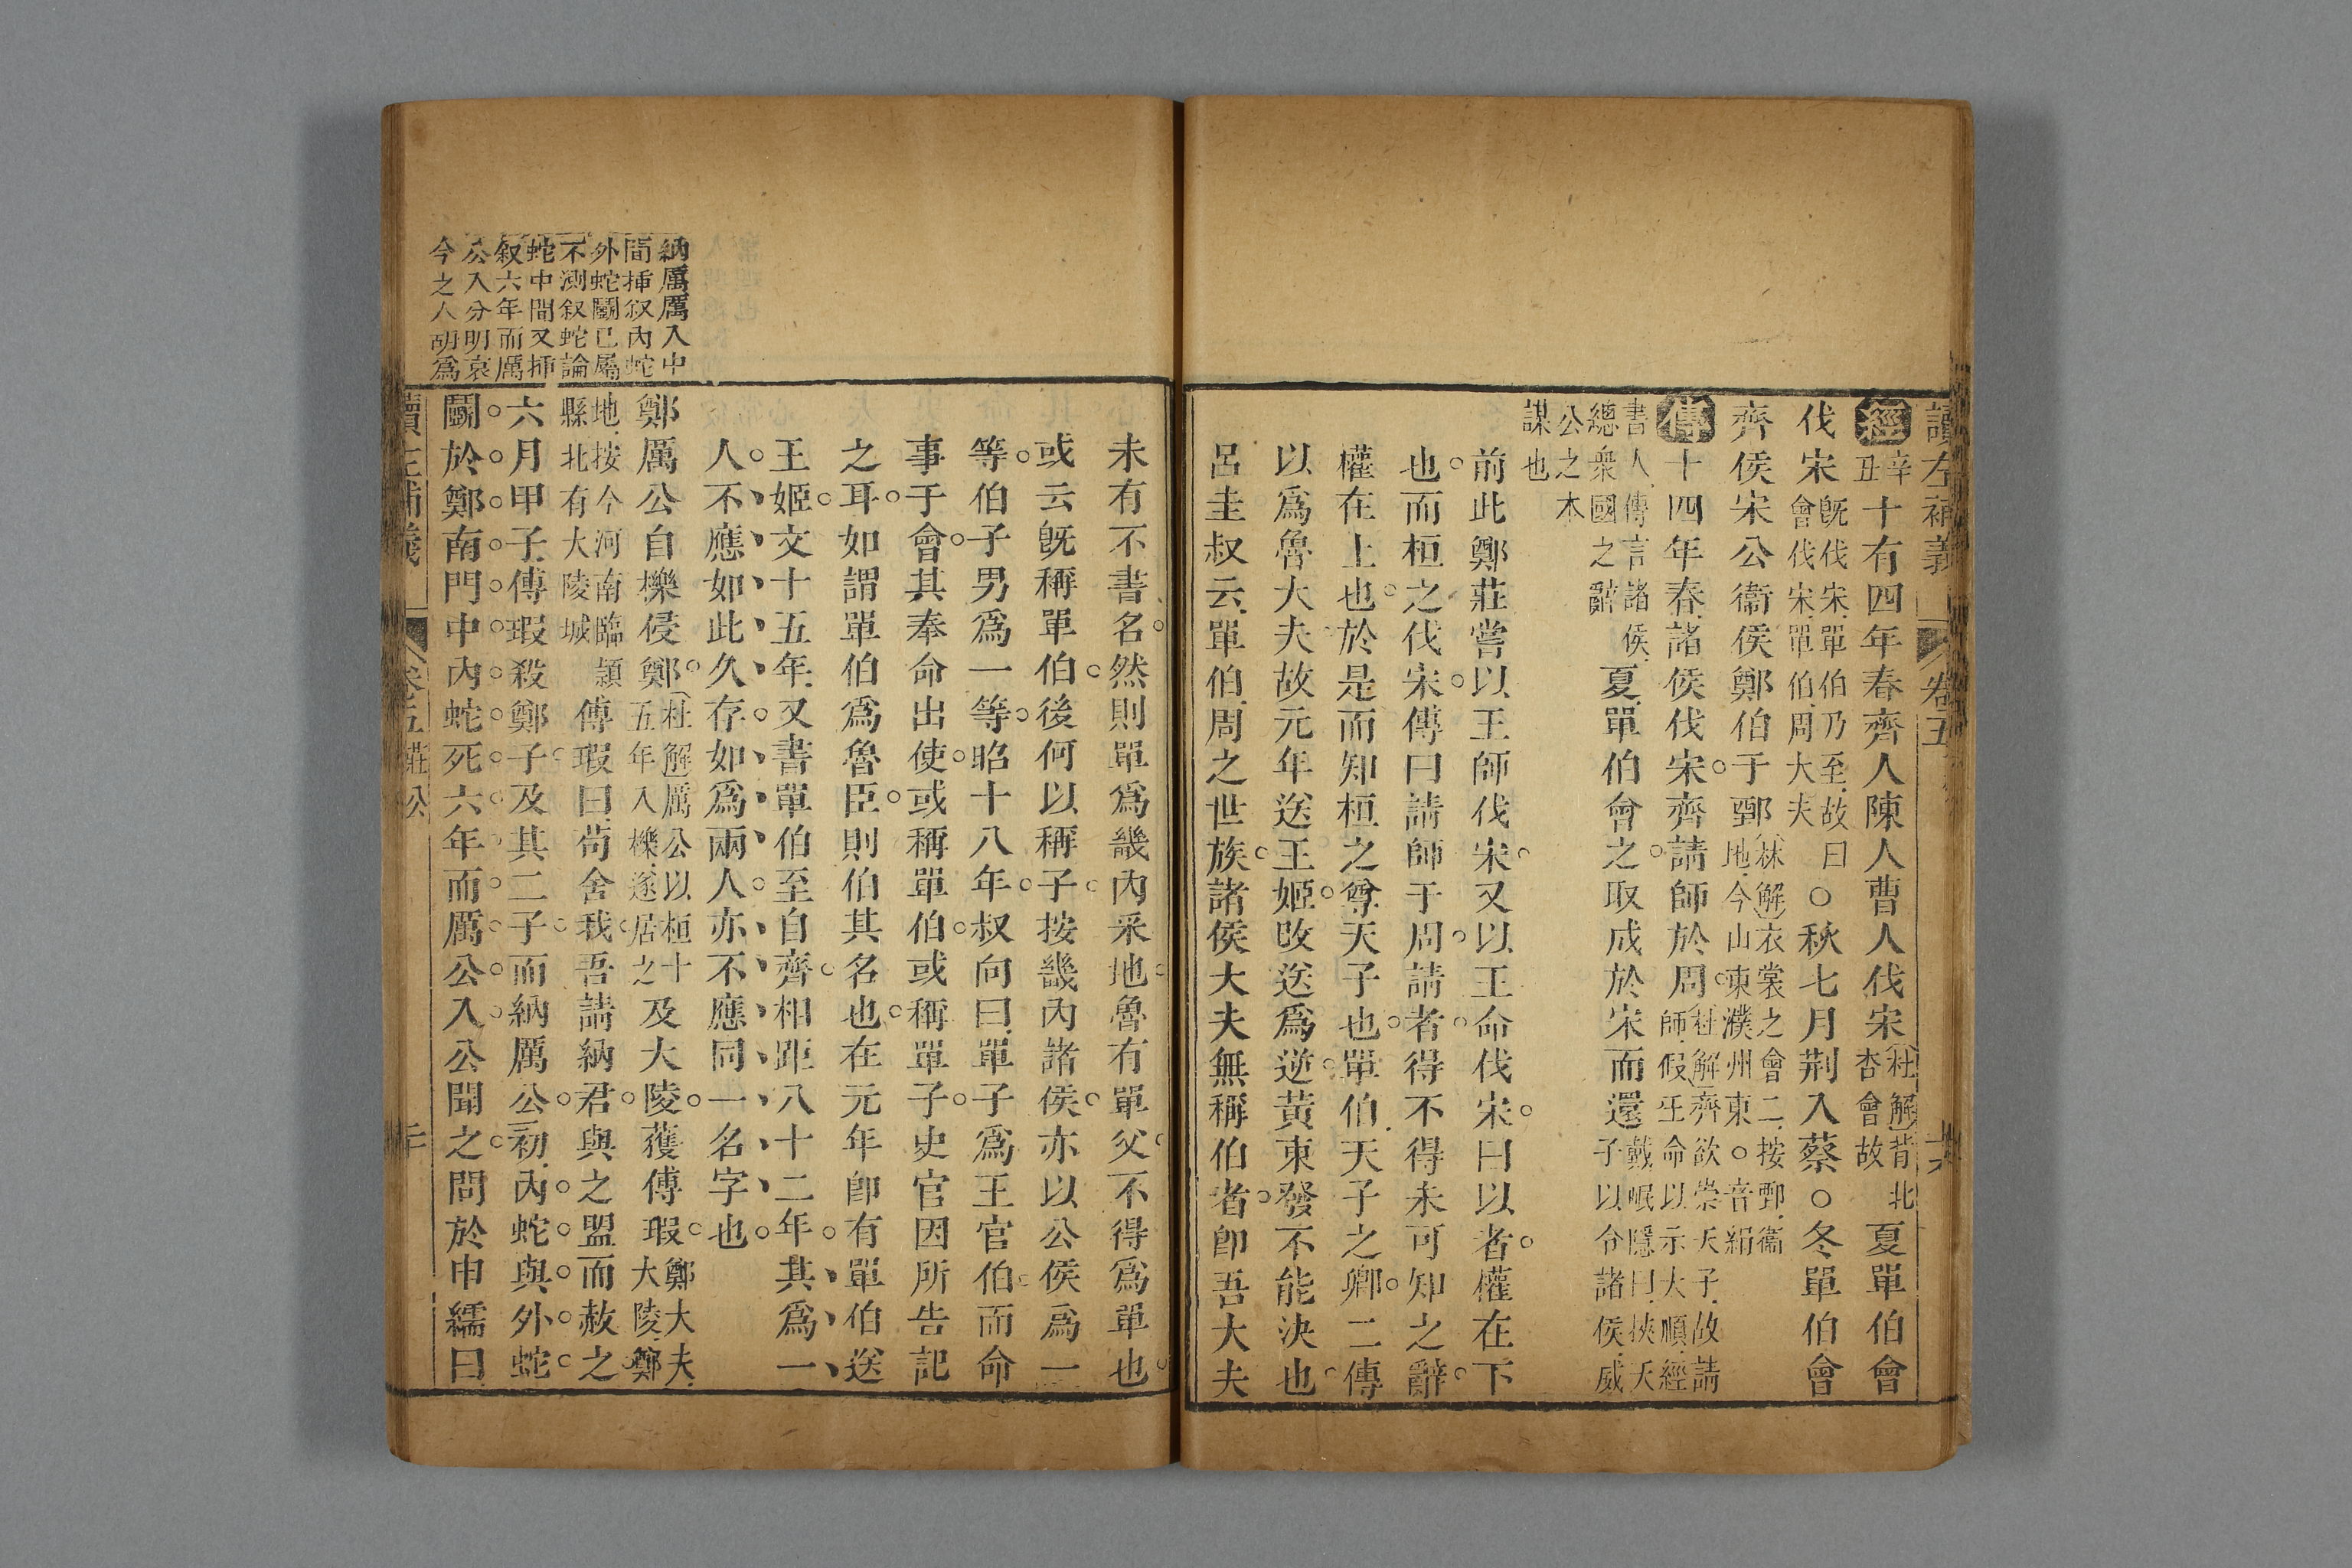 讀左補義 卷五
經辛丑十有四年春齊人陳人曹人伐宋杜解背北杏會故夏單伯會
伐宋既伐宋單伯乃至故曰會伐宋單伯周大夫○秋七月荆入蔡○冬單伯會
齊侯宋公衞侯鄭伯于鄄林解衣裳之會二按鄄衞地今山東濮州東○音絹
傳十四年春諸侯伐宋齊請師於周杜解齊欲崇天子故請師假王命以示大順經
書人傳言諸侯總衆國之辭夏單伯會之取成於宋而還戴岷隱曰挾天子以令諸侯威
公之本謀也
前此鄭莊嘗以王師伐宋又以王命伐宋曰以者權在下
也而桓之伐宋傳曰請師于周請者得不得未可知之辭
權在上也於是而知桓之尊天子也單伯天子之卿二傳
以爲魯大夫故元年送王姬改送爲逆黄東發不能決也
呂圭叔云單伯周之世族諸侯大夫無稱伯者卽吾大夫
未有不書名然則單爲畿內采地魯有單父不得爲單也
或云既稱單伯後何以稱子按畿內諸侯亦以公侯爲一
等伯子男爲一等昭十八年叔向曰單子爲王官伯而命
事于會其奉命出使或稱單伯或稱單子史官因所告記
之耳如謂單伯爲魯臣則伯其名也在元年卽有單伯送
王姬文十五年又書單伯至自齊相距八十二年其爲一
人不應如此久存如爲兩人亦不應同一名字也
納厲厲入中
間挿叙內蛇
外蛇鬬已屬
不測叙蛇論
蛇中間又挿
叙六年而厲
公入分明哀
今之人胡爲
鄭厲公自櫟侵鄭杜解厲公以桓十五年入櫟遂居之及大陵獲傅瑕鄭大夫大陵鄭
地按今河南臨潁縣北有大陵城傅瑕曰苟舍我吾請納君與之盟而赦之
六月甲子傅瑕殺鄭子及其二子而納厲公初內蛇與外蛇
鬬於鄭南門中內蛇死六年而厲公入公聞之問於申繻曰
讀左補義 卷五莊公